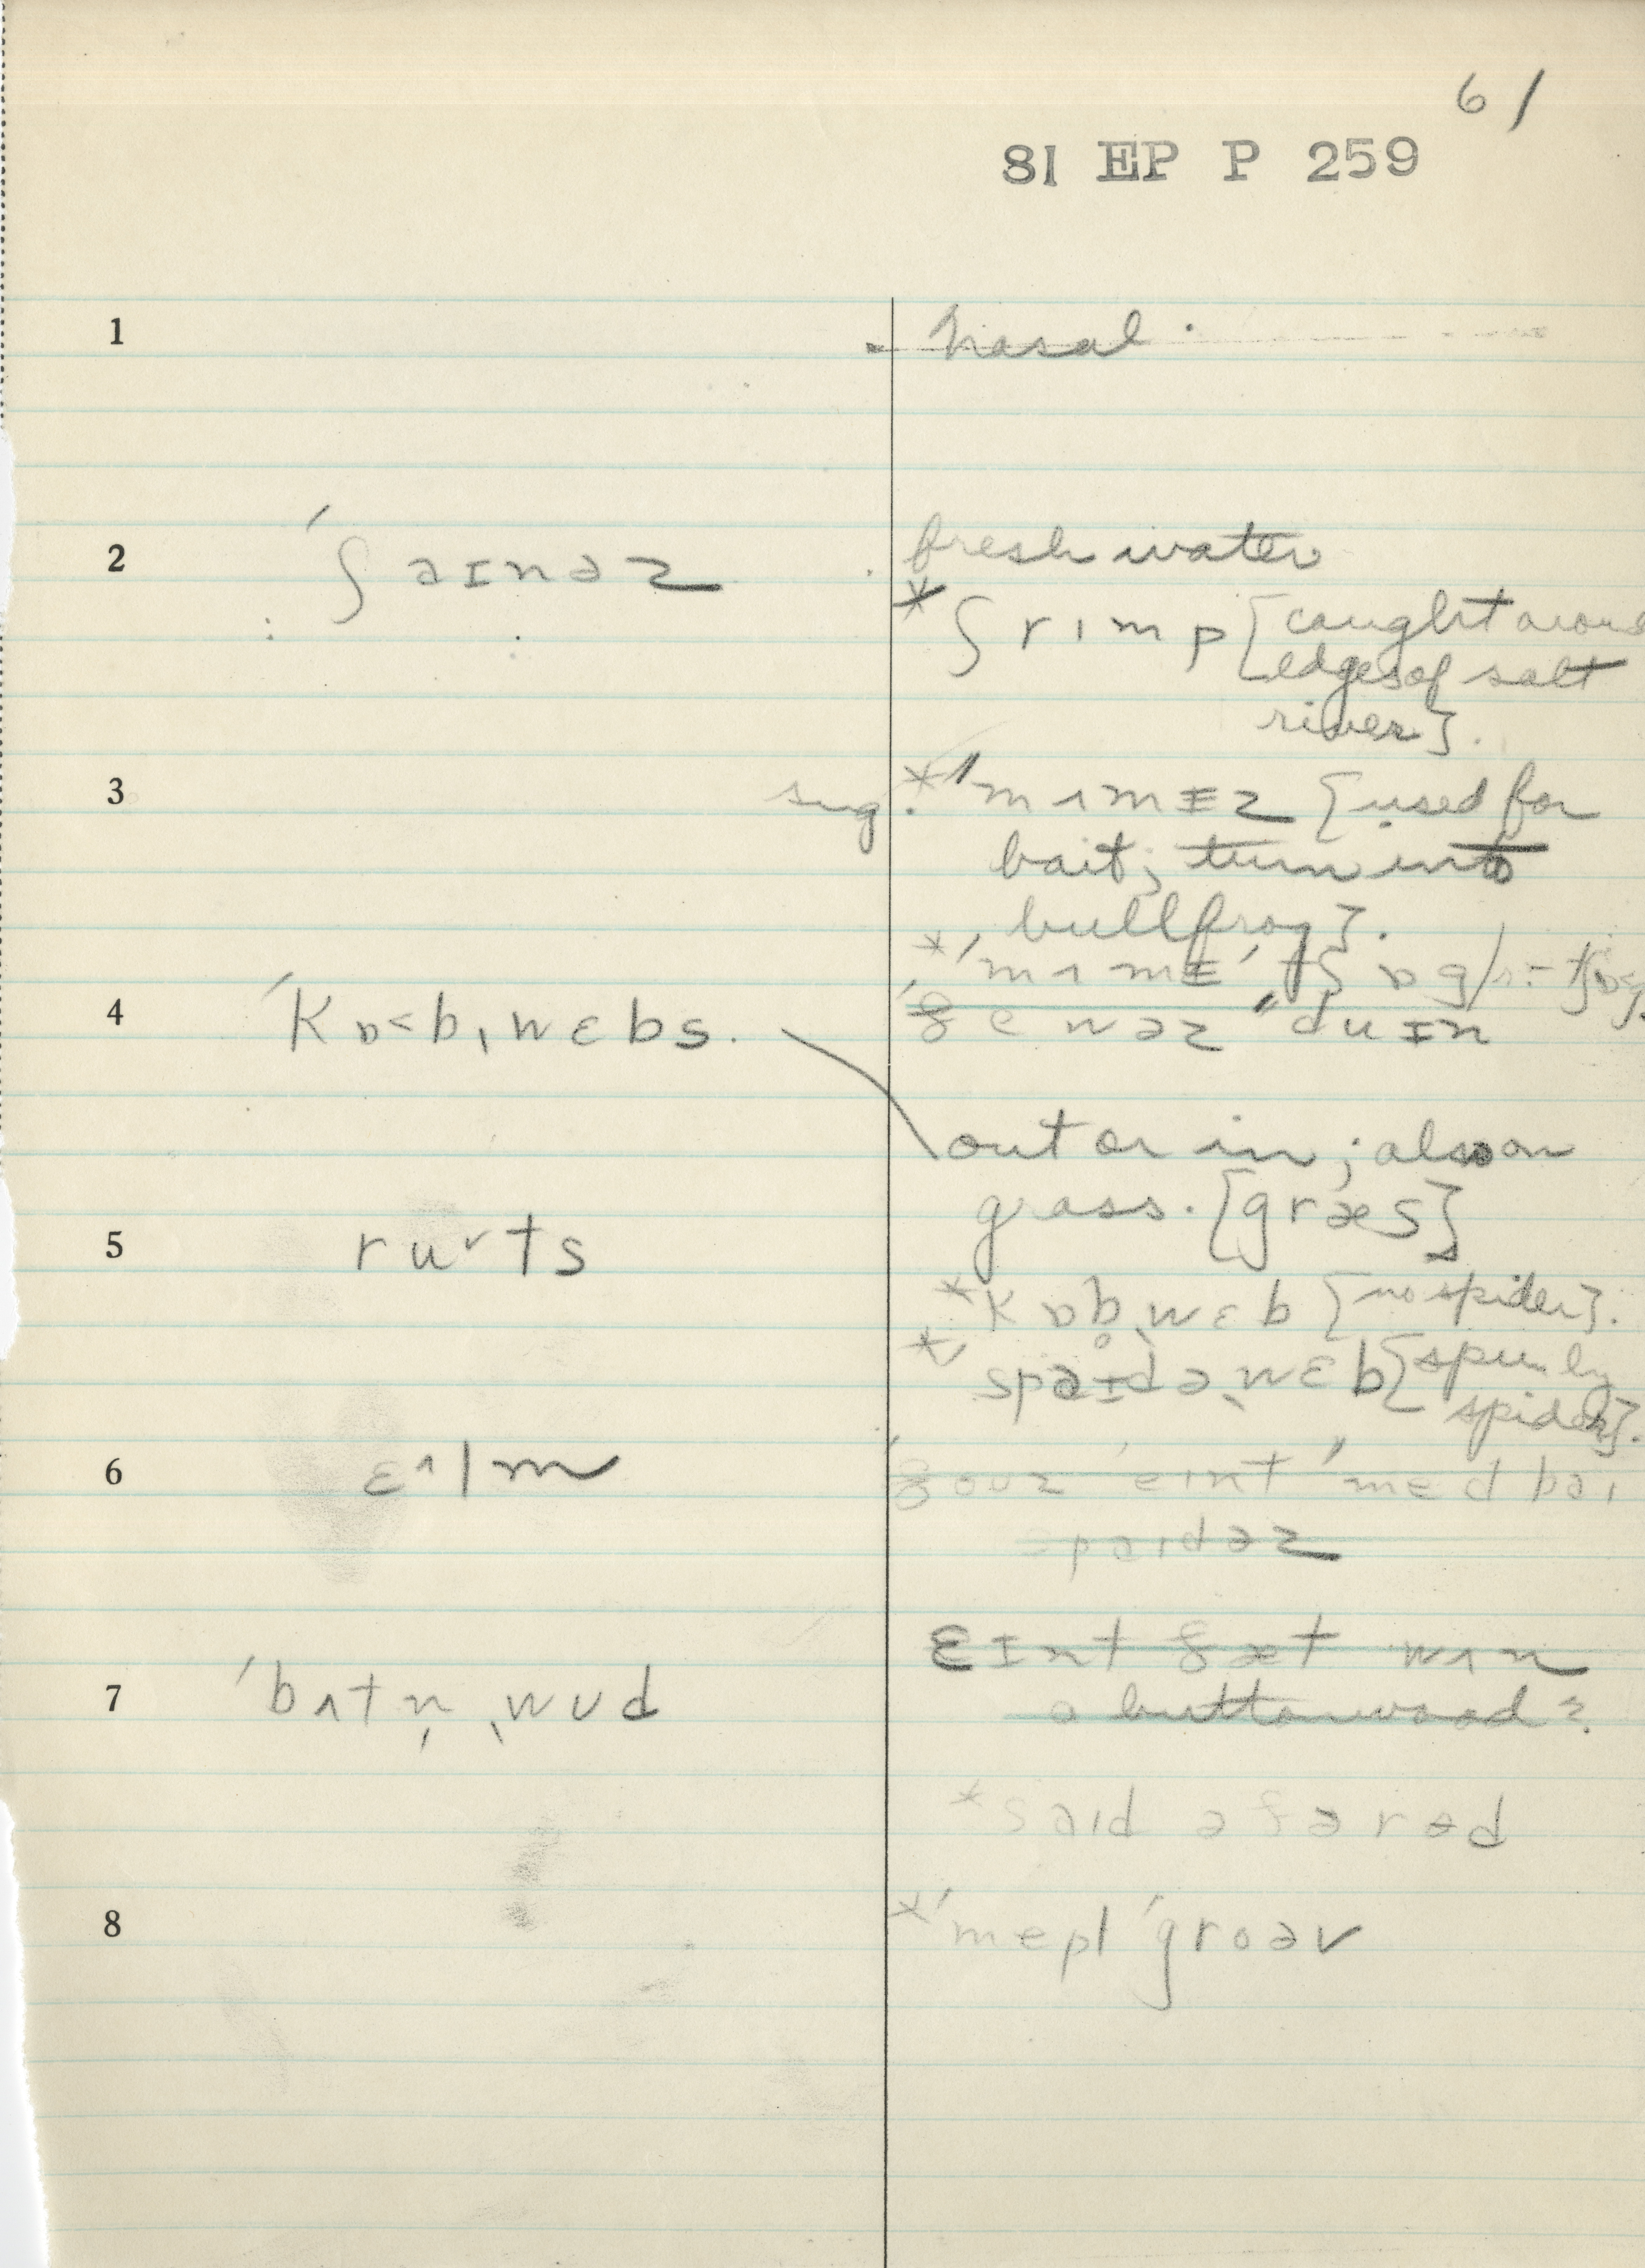 61
81 EP P 259
1 nasal.
2 ˈʃaɪnəz fresh water
*ʃrɪmp [caught around
edges of salt
river].
3 sug. *ˈmʌmɪz [used for
bait; turn into
bullfrog].
*ˈmʌmɪˈtʃɒg
4 ˈkɒ<b,wɛbs. ðe wəz "duɪn
out or in; also on
grass. [græs]
5 ruˇts
*kɒb̥ˌwɛb [no spider].
*spaɪdəˌwɛb [spun by
spider].
6 ɛ^lm ðouz eɪnt "med baɪ
spaɪdəz
ɛɪnt ðæt wʌn
7 ˈbʌtn̩ˌwud a buttonwood?
*saɪd ə farəd
8 *ˈmepl ˈgroəv